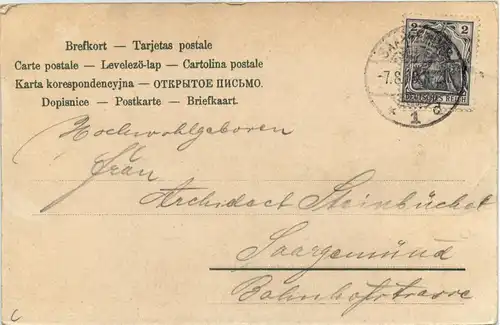 Brefkort — Tarjetas postale
Carte postale — Levelező-lap — Cartolina postale
Karta korespondencyjna — ОТКРЫТОЕ ПИСЬМО.
Dopisnice — Postkarte — Briefkaart.
2 2
DEUTSCHES REICH
-7.8.
* 1 c
Hochwohlgeboren
Frau
Architect Steinbüchel
Saargemünd
Bahnhofstrasse